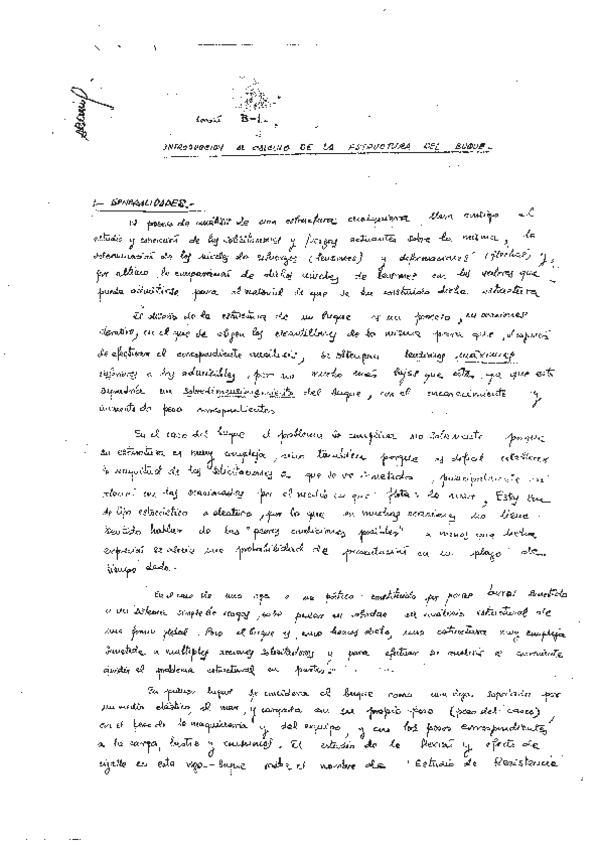 B-1.
INTRODUCCION AL CALCULO DE LA ESTRUCTURA DEL BUQUE.-
1.- GENERALIDADES.-
El proceso de analisis de una estructura cualquiera lleva consigo el
estudio y conocimiento de las solicitaciones y fuerzas actuantes sobre la misma, la
determinación de los niveles de esfuerzos (tensiones) y deformaciones (flechas) y,
por ultimo, la comparacion de dichos niveles de tensiones con los valores que
puede admitirse para el material de que se ha construido dicha estructura
El diseño de la estructura de un buque es un proceso, en ocasiones
iterativo, en el que se eligen los escantillones de la misma para que, despues
de efectuar el correspondiente analisis, se obtengan tensiones maximas
inferiores a las admisibles, pero no mucho mas bajas que estas, ya que esto
supondria un sobredimensionamiento del buque, con el encarecimiento y
aumento de peso correspondientes.
En el caso del buque el problema se complica no solamente porque
su estructura es muy compleja, sino tambien porque es dificil establecer
la magnitud de las solicitaciones a que se ve sometido, principalmente en
relacion con las ocasionadas por el medio en que flota: la mar. Esta son
de tipo estadistico o aleatorio, por lo que en muchas ocasiones no tiene
sentido hablar de las "peores condiciones posibles" a menos que dicha
expresion se asocie una probabilidad de presentación en un plazo de
tiempo dado.
En el caso de una viga o un pórtico constituido por pocas barras sometido
a un sistema simple de cargas, puede ser abordado su analisis estructural de
una forma global. Pero el buque es, como hemos dicho, una estructura muy compleja
sometida a multiples acciones solicitadoras y para efectuar su analisis es conveniente
dividir el problema estructural en partes.
En primer lugar se considera el buque como una viga soportada por
un medio elástico, el mar, y cargada con su propio peso (peso del casco),
con el peso de la maquinaria y del equipo, y con los pesos correspondientes
a la carga, lastre y consumos. El estudio de la flexión y efecto de
cizalla en esta viga-buque recibe el nombre de "Estudio de Resistencia